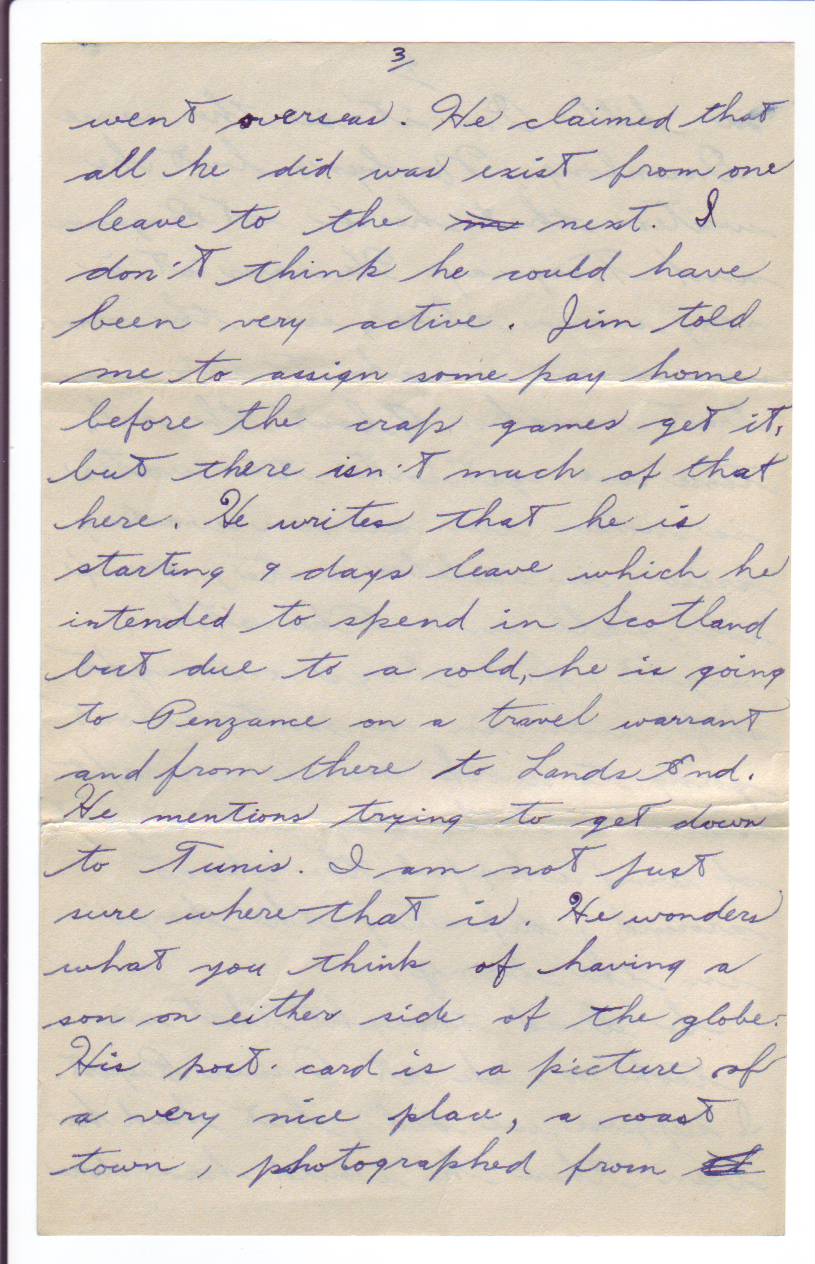 3
went overseas. He claimed that
all he did was exist from one
leave to the next. I
don't think he could have
been very active. Jim told
me to assign some pay home
before the crap games get it,
but there isn't much of that
here. He writes that he is
starting 9 days leave which he
intended to spend in Scotland
but due to a cold, he is going
to Penzance on a travel warrant
and from there to Lands End.
He mentions trying to get down
to Tunis. I am not just
sure where that is. He wonders
what you think of having a
son on either side of the globe.
His post-card is a picture of
a very nice place, a coast
town, photographed from